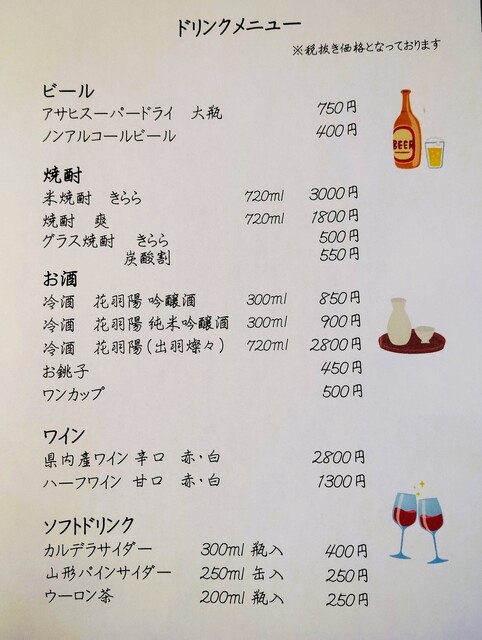 ドリンクメニュー
※税抜き価格となっております
ビール
アサヒスーパードライ 大瓶 750円
ノンアルコールビール 400円
BEER
焼酎
米焼酎 きらら 720ml 3000円
焼酎 爽 720ml 1800円
グラス焼酎 きらら 500円
炭酸割 550円
お酒
冷酒 花羽陽 吟醸酒 300ml 850円
冷酒 花羽陽 純米吟醸酒 300ml 900円
冷酒 花羽陽(出羽燦々) 720ml 2800円
お銚子 450円
ワンカップ 500円
ワイン
県内産ワイン 辛口 赤・白 2800円
ハーフワイン 甘口 赤・白 1300円
ソフトドリンク
カルデラサイダー 300ml 瓶入 400円
山形パインサイダー 250ml 缶入 250円
ウーロン茶 200ml 瓶入 250円